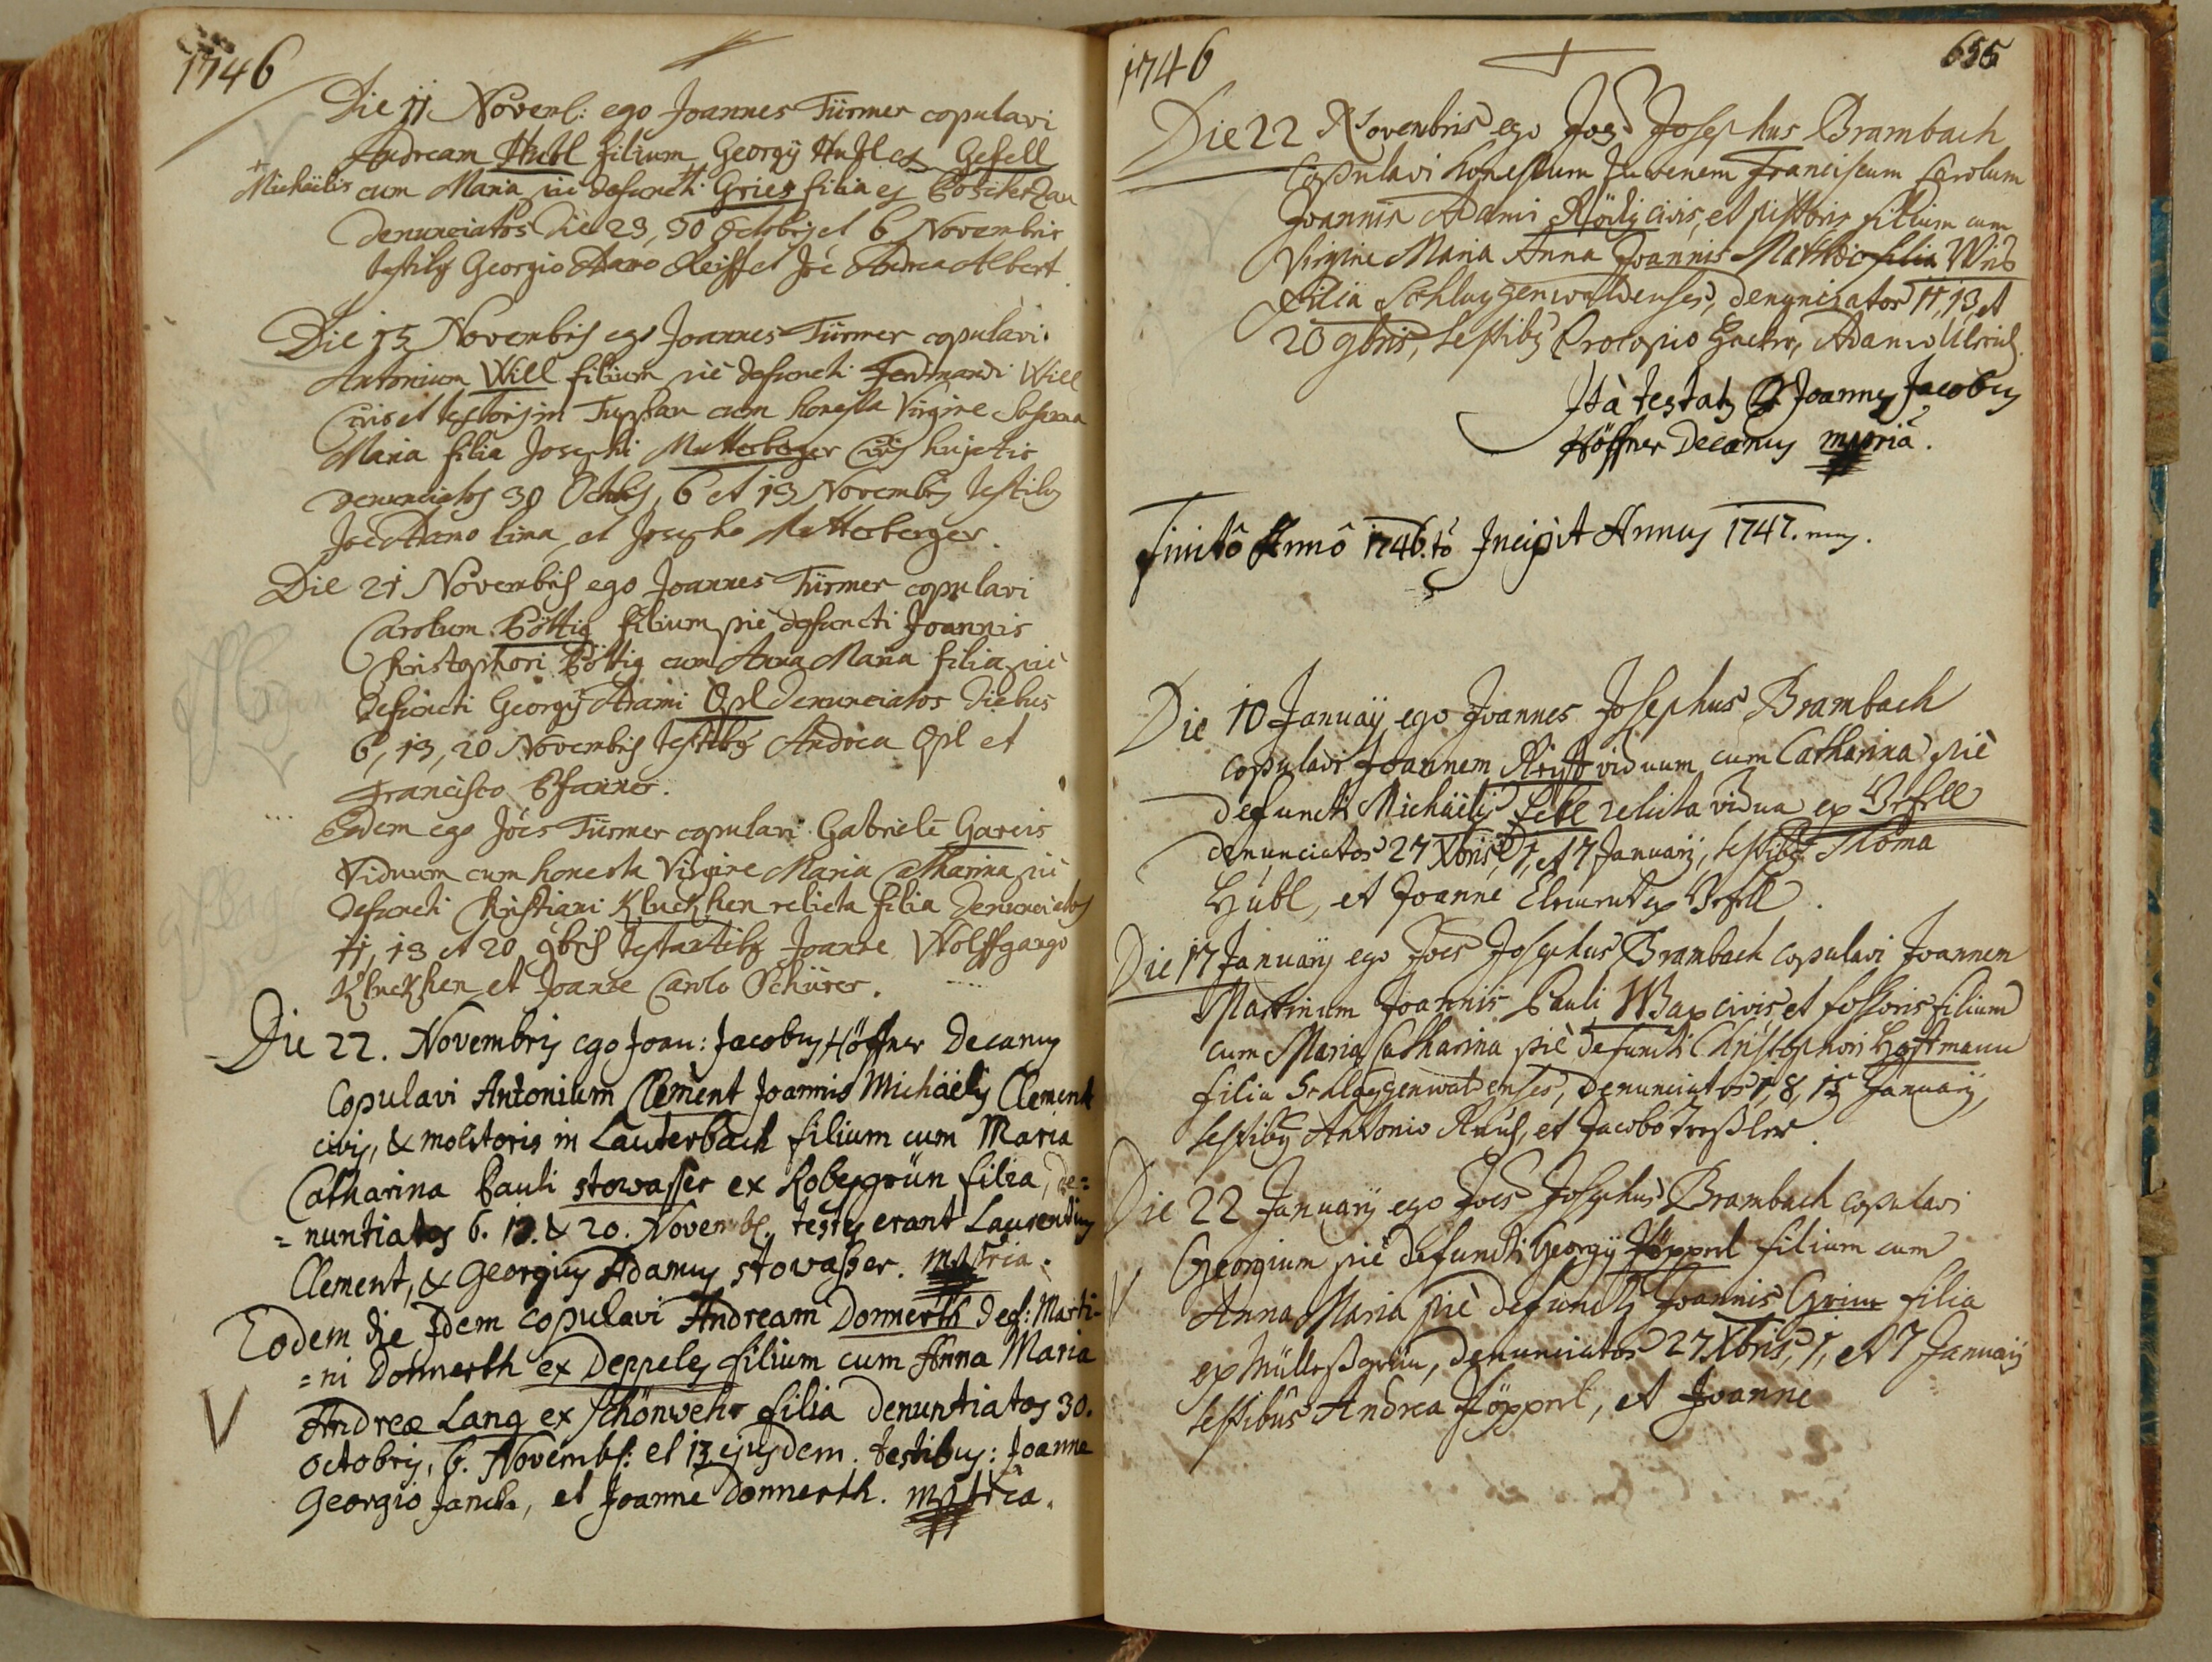 1746
Die 11 Novemb: ego Joannes Türmer copulavi
Andream Hubl filium Georgÿ Hubl ex Gefell
+
Michäelis cum Maria pie defuncti Gries filia ex Poschetzau
denunciatos die 23, 30 Octobris et 6 Novembris
testibus Georgio Adamo Reiff et Joē Andrea Albert
Die 15 Novembris ego Joannes Türmer copulavi
Antonium Will filium piè defuncti Ferdinandi Will
Civis et textoris in Tuppau cum honesta Virgine Susanna
Maria filia Josephi Mutterberger Civis hujatis
denunciatos 30 Octobris, 6 et 13 Novembris testibus
Joē Adamo Lima et Josepho Mutterberger.
Die 21 Novembris ego Joannes Türmer copulavi
Carolum Pöttig filium piè defuncti Joannis
Christophori Pöttig cum Anna Maria filia piè
defuncti Georgÿ Adami Opl denunciatos diebus
6, 13, 20 Novembris testibus Andrea Opl et
Francisco Pfanner.
Eodem ego Joēs Türmer copulavi Gabrielē Gareis
Viduum cum honesta Virgine Maria Catharina piè
defuncti Christiani Kluckhen relicta filia denunciatos
11, 13 et 20 9bris testantibus Joanne Wolffgango
Kluckhen et Joanne Carolo Schürer.
Die 22. Novembris ego Joan: Jacobus Höffner Decanus
Copulavi Antonium Clement Joannis Michäelis Clement
civis, & molitoris in Lauterbach filium cum Maria
Catharina Pauli stowasser ex Robesgrün filia, de=
=nuntiatos 6. 13. & 20. Novembr. testes erant Laurentius
Clement, & Georgius Adamus stowaßer. mppria.
Eodem die Idem copulavi Andream Donnerth def: Marti-
=ni Donnerth ex Deppeles filium cum Anna Maria
V Andreæ Lang ex schönwehr filia denuntiatos 30.
octobris, 6. Novembr: et 13 ejusdem. testibus: Joanne
Georgio Janck, et Joanne Donnerth. mppria.
1746 655
Die 22 Novembris ego Joēs Josephus Brambach
Copulavi honestum Juvenem Franciscum Carolum
Joannis Adami Rödig civis, et pistoris filium cum
Virgine Maria Anna Joannis Matthiæ filia
filia Schlaggenwaldenses, denunciatos 11, 13, et
20 9bris, testibus Procopio Hacker, Adamo Ulrich.
Ità testatur Joannes Jacobus
Höffner Decanus mppria.
Finitô Annô 1746.tô Incipit Annus 1747.mus.
Die 10 Januarÿ ego Joannes Josephus Brambach
copulavi Joannem Rist viduum cum Catharina piè
defuncti Michäelis relicta vidua ex
denunciatos 27 Xbris, 1, et 7 Januarÿ, testibus Thoma
Hübl, et Joanne Clement ex
Die 17 Januarÿ ego Joēs Josephus Brambach copulavi Joannem
Martinum Joannis Pauli Wax civis et fossoris filium
cum Maria Catharina piè defuncti Christophori Hoffmann
filia Schlaggenwaldenses, denunciatos 1, 8, 15 Januarÿ,
testibus Antonio et Jacobo Treßler.
Die 22 Januarÿ ego Joēs Josephus Brambach copulavi
Georgium piè defuncti Georgÿ Köpperl filium cum
V Anna Maria piè defuncti Joannis Grim filia
ex Müllesgrün, denunciatos 27 Xbris, 1, et 7 Januarÿ
testibus Andrea Köpperl, et Joanne